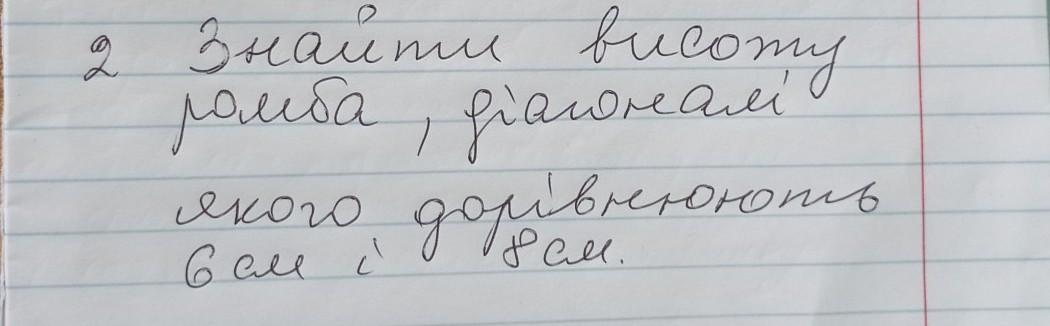 2 Знайти висоту
ромба, діагоналі
якого дорівнюють
6 см і 8 см.